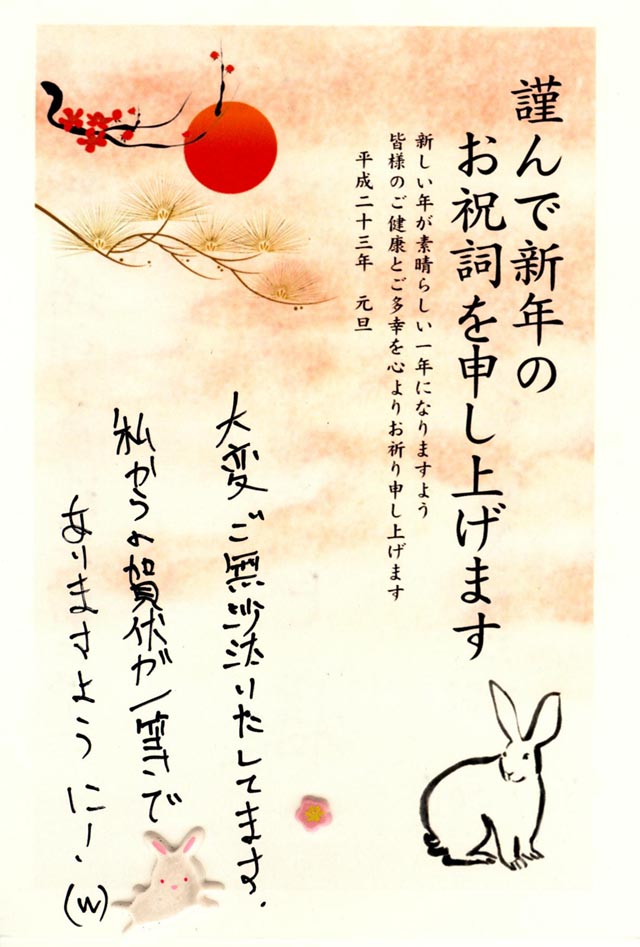 謹んで新年の
お祝詞を申し上げます
新しい年が素晴らしい一年になりますよう
皆様のご健康とご多幸を心よりお祈り申し上げます
平成二十三年 元旦
大変ご無沙汰いたしてます。
私からの賀状が一等で
ありますように!
(W)